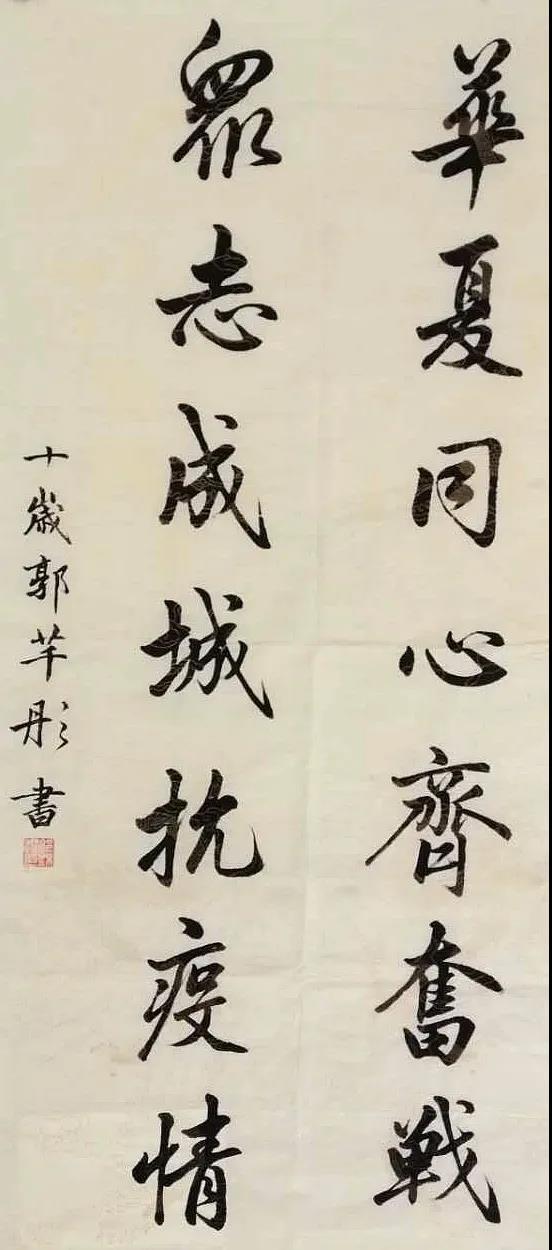 華夏同心齊奮戰
眾志成城抗疫情
十歲郭芊彤書